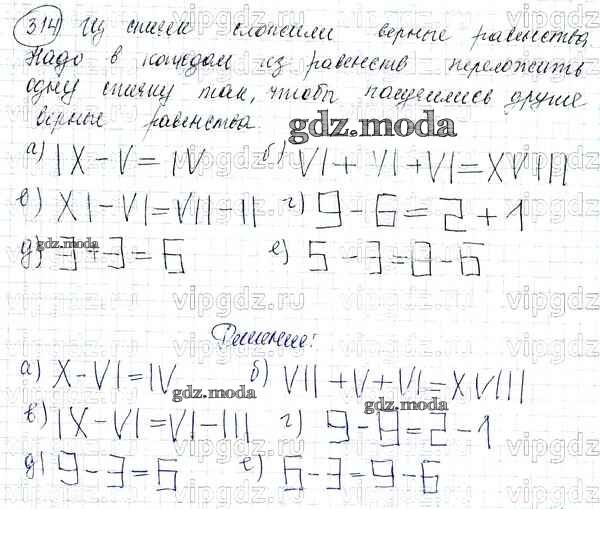 314) Из спичек сложили верные равенства.
Надо в каждом из равенств переложить
одну спичку так, чтобы получились другие
верные равенства.
gdz.moda
а) IX - V = IV б) VI + VI + VI = XVIII
в) XI - VI = VII - II г) 9 - 6 = 2 + 1
д) 3 + 3 = 6 е) 5 - 3 = 8 - 6
gdz.moda
Решение:
а) X - VI = IV б) VII + V + VI = XVIII
gdz.moda
gdz.moda
в) IX - VI = VI - III г) 9 - 9 = 2 - 1
д) 9 - 3 = 6 е) 6 - 3 = 9 - 6
vipgdz.ru